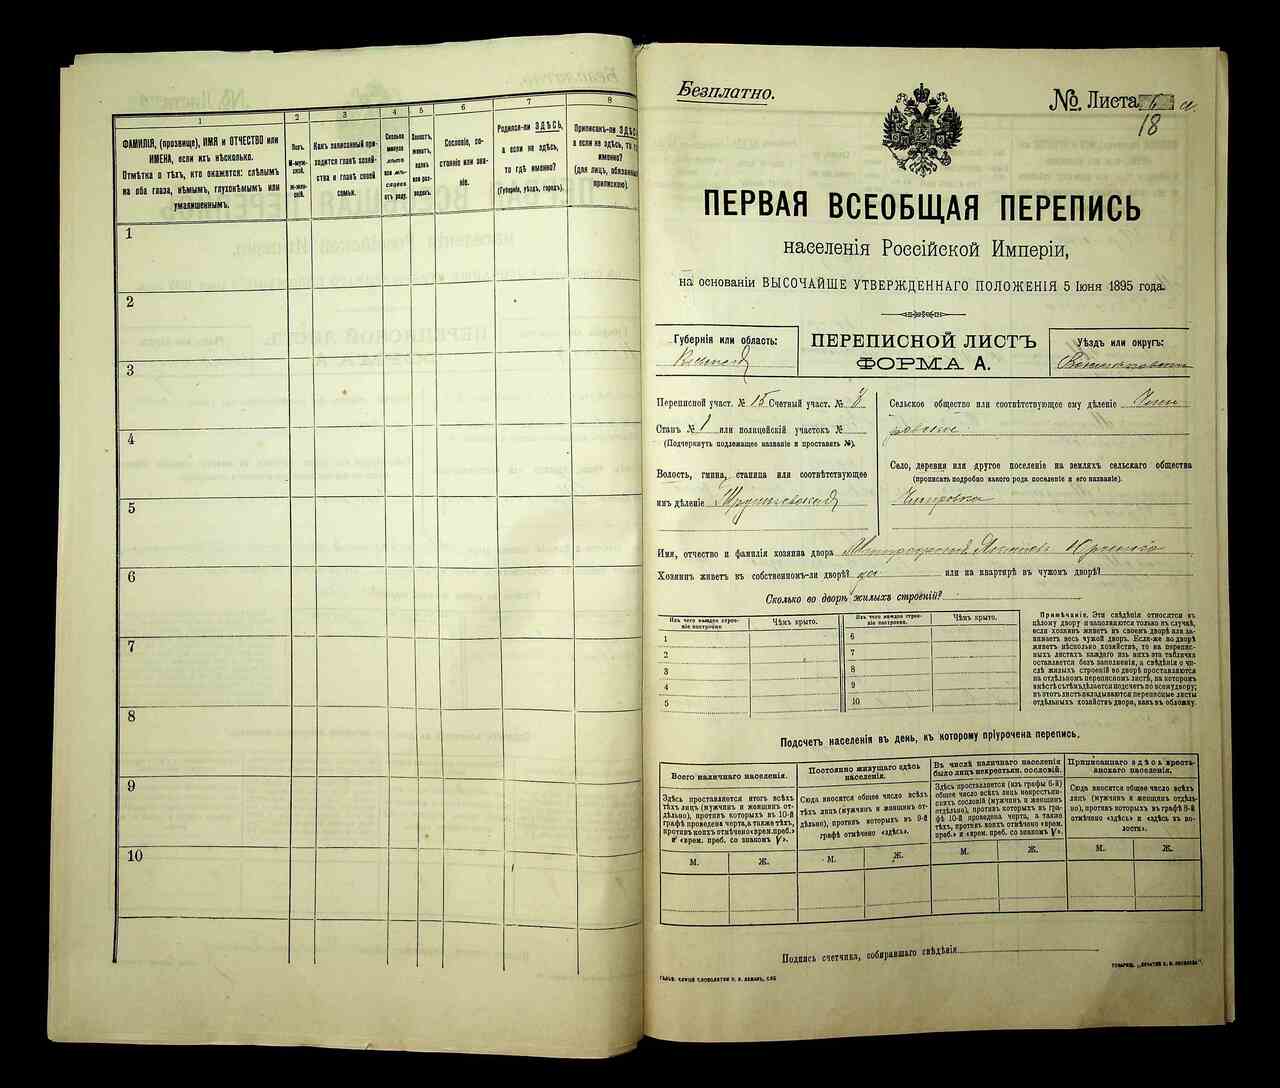 1
ФАМИЛІЯ, (прозвище), ИМЯ и ОТЧЕСТВО или
ИМЕНА, если ихъ нѣсколько.
Отмѣтка о тѣхъ, кто окажется: слѣпымъ
на оба глаза, нѣмымъ, глухонѣмымъ или
умалишеннымъ.
2
Полъ.
М-муж-
ской.
Ж-жен-
скій.
3
Какъ записанный при-
ходится главѣ хозяй-
ства и главѣ своей
семьи.
4
Сколько
минуло
лѣтъ
или мѣ-
сяцевъ
отъ роду.
5
Холостъ,
женатъ,
вдовъ
или раз-
веденъ.
6
Сословіе, со-
стояніе или зва-
ніе.
7
Родился-ли ЗДѢСЬ,
а если не здѣсь,
то гдѣ именно?
(Губернія, уѣздъ, городъ).
8
Приписанъ-ли ЗДѢСЬ,
а если не здѣсь, то гдѣ
именно?
(для лицъ, обязанныхъ
припискою).
1
2
3
4
5
6
7
8
9
10
Безплатно.
№ Листа 6 а.
18
ПЕРВАЯ ВСЕОБЩАЯ ПЕРЕПИСЬ
населенія Россійской Имперіи,
на основаніи ВЫСОЧАЙШЕ УТВЕРЖДЕННАГО ПОЛОЖЕНІЯ 5 Іюня 1895 года.
Губернія или область:
ПЕРЕПИСНОЙ ЛИСТЪ
ФОРМА А.
Уѣздъ или округъ:
Переписной участ. № 15 Счетный участ. № 8
Станъ № 1 или полицейскій участокъ №
(Подчеркнуть подлежащее названіе и проставить №).
Волость, гмина, станица или соответствующее
имъ дѣленіе
Сельское общество или соотвѣтствующее ему дѣленіе
Село, деревня или другое поселеніе на земляхъ сельскаго общества
(прописать подробно какого рода поселеніе и его названіе).
Имя, отчество и фамилія хозяина двора
Хозяинъ живетъ въ собственномъ-ли дворѣ? да или на квартирѣ въ чужомъ дворѣ?
Сколько во дворѣ жилыхъ строеній?
Изъ чего каждое строе-
ніе построено
Чѣмъ крыто.
Изъ чего каждое строе-
ніе построено
Чѣмъ крыто.
1
2
3
4
5
6
7
8
9
10
Примѣчаніе. Эти свѣдѣнія относятся къ
цѣлому двору и заполняются только въ случаѣ,
если хозяинъ живетъ въ своемъ дворѣ или за-
нимаетъ весь чужой дворъ. Если-же во дворѣ
живетъ нѣсколько хозяйствъ, то на перепис-
ныхъ листахъ каждаго изъ нихъ эта табличка
оставляется безъ заполненія, а свѣдѣнія о чи-
слѣ жилыхъ строеній во дворѣ проставляются
на отдѣльномъ переписномъ листѣ, на которомъ
вмѣстѣ съ тѣмъ дѣлается подсчетъ по всему двору;
въ этотъ листъ вкладываются переписные листы
отдѣльныхъ хозяйствъ двора, какъ въ обложку.
Подсчетъ населенія въ день, къ которому пріурочена перепись.
Всего наличнаго населенія.
Здѣсь проставляется итогъ всѣхъ
тѣхъ лицъ (мужчинъ и женщинъ от-
дѣльно), противъ которыхъ въ 10-й
графѣ проведена черта, а также тѣхъ,
противъ коихъ отмѣчено «врем. преб.»
и «врем. преб. со знакомъ V».
Постоянно живущаго здѣсь
населенія.
Сюда вносятся общее число всѣхъ
тѣхъ лицъ (мужчинъ и женщинъ от-
дѣльно), противъ которыхъ въ 9-й
графѣ отмѣчено «здѣсь».
Въ числѣ наличнаго населенія
было лицъ некрестьян. сословій.
Здѣсь проставляется (изъ графы 6-й)
общее число всѣхъ лицъ некрестьян-
скихъ сословій (мужчинъ и женщинъ
отдѣльно), противъ которыхъ въ гра-
фѣ 10-й проведена черта, а также
тѣхъ, противъ коихъ отмѣчено «врем.
преб.» и «врем. преб. со знакомъ V».
Приписаннаго здѣсь кресть-
янскаго населенія.
Сюда вносятся общее число всѣхъ
лицъ (мужчинъ и женщинъ отдѣль-
но), противъ которыхъ въ графѣ 8-й
отмѣчено «здѣсь» и «здѣсь въ во-
лости».
М.
Ж.
М.
Ж.
М.
Ж.
М.
Ж.
Подпись счетчика, собиравшаго свѣдѣнія